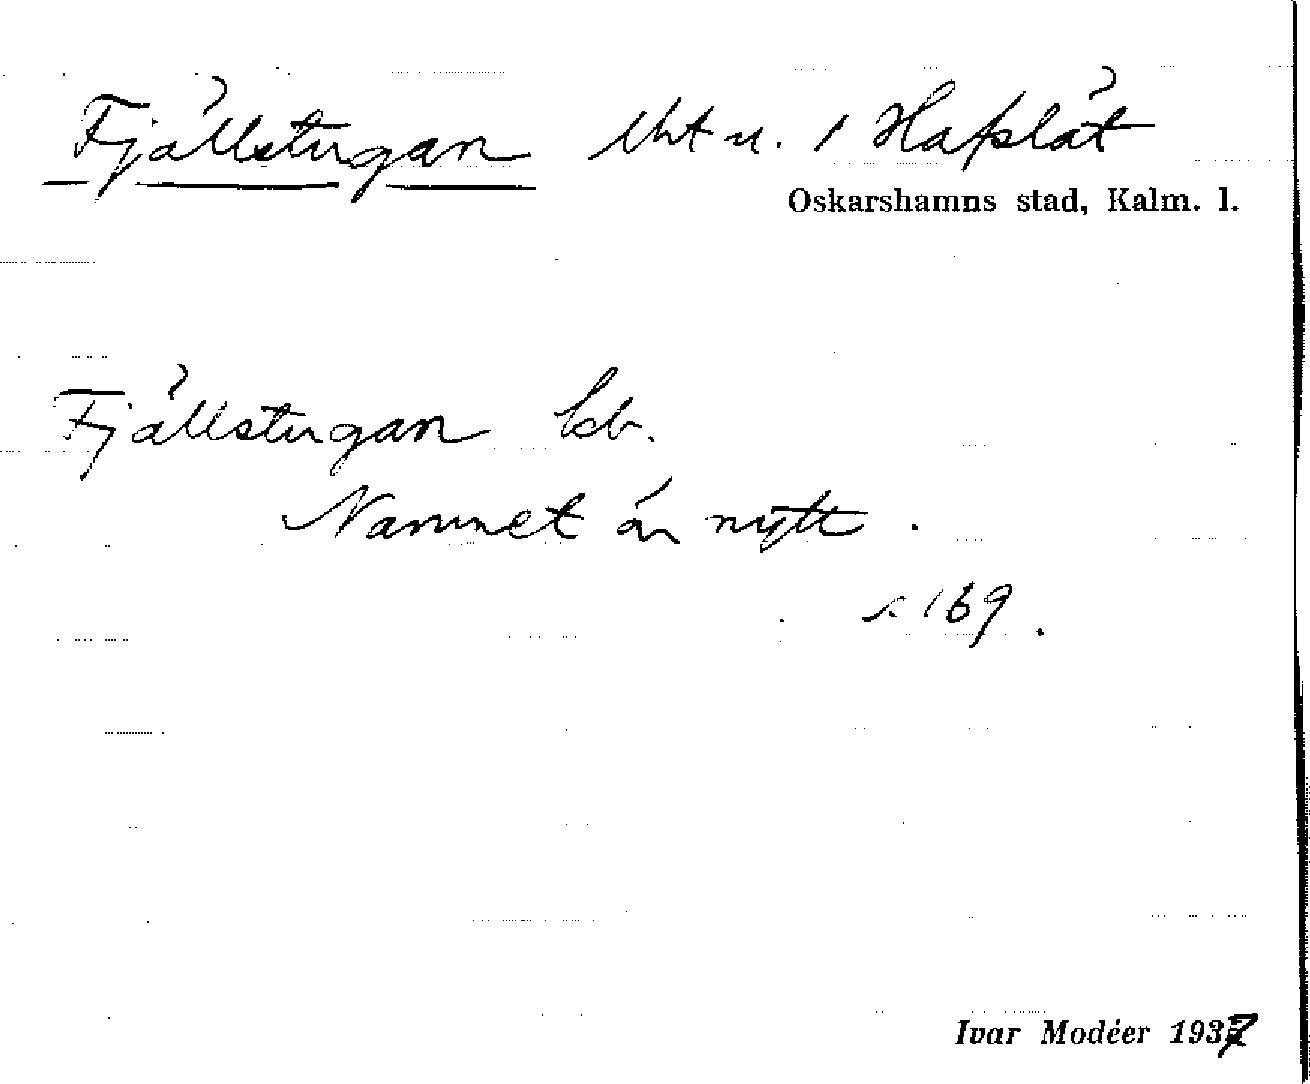 Fjällstugan lht u. 1 Hafslät
Oskarshamns stad, Kalm. l.
Fjällstugan
Namnet är nytt.
s. 169.
Ivar Modéer 1937